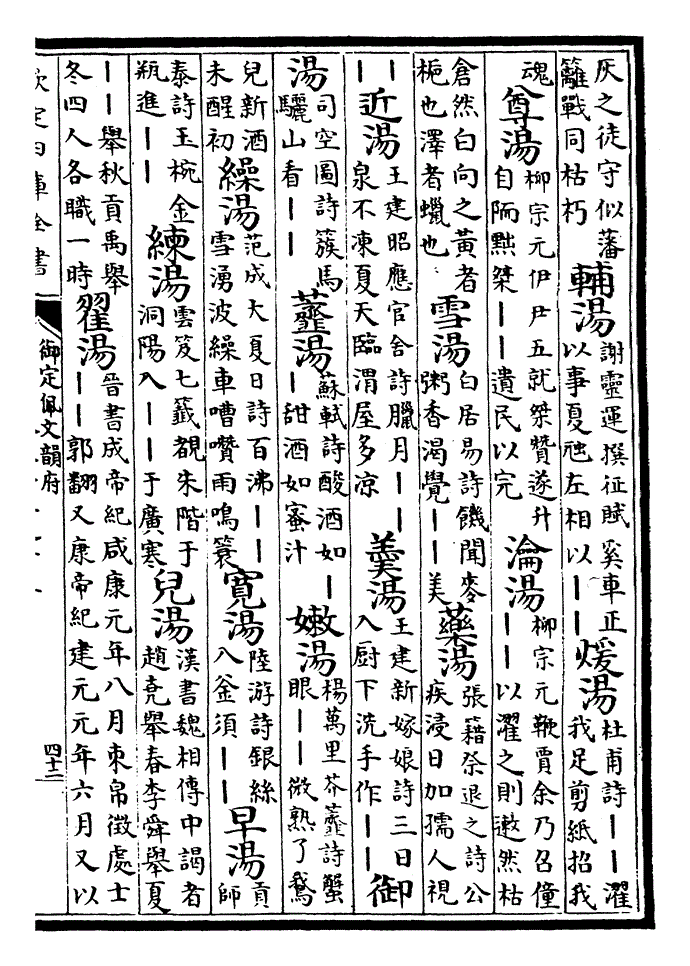 灰之徒守似藩籬戰同枯朽 輔湯 謝靈運撰征賦奚車正以事夏虺左相以丨丨 煖湯 杜甫詩丨丨濯我足剪紙招我
魂 尊湯 柳宗元伊尹五就桀贊遂升自陑黜桀丨丨遺民以完 瀹湯 柳宗元鞭賈余乃召僮丨丨以濯之則遬然枯
倉然白向之黃者梔也澤者蠟也 雪湯 白居易詩饑聞麥粥香渴覺丨丨美 藥湯 張籍祭退之詩公疾浸日加孺人視
丨丨 近湯 王建昭應官舍詩臘月丨丨泉不凍夏天臨渭屋多凉 羹湯 王建新嫁娘詩三日入厨下洗手作丨丨 御
湯 司空圖詩簇馬驪山看丨丨 虀湯 蘇軾詩酸酒如丨丨甜酒如蜜汁 嫩湯 楊萬里芥虀詩蟹眼丨丨微熟了鵞
兒新酒未醒初 繰湯 范成大夏日詩百沸丨丨雪湧波繰車嘈囋雨鳴簑 寛湯 陸游詩銀絲入釜須丨丨 早湯 貢師
泰詩玉椀金瓶進丨丨 練湯 雲笈七籤覩朱階于洞陽入丨丨于廣寒 兒湯 漢書魏相傳中謁者趙堯舉春李舜舉夏
丨丨舉秋貢禹舉冬四人各職一時 翟湯 晉書成帝紀咸康元年八月束帛徵處士丨丨郭翻又康帝紀建元元年六月又以
欽定四庫全書
御定佩文韻府
四十二